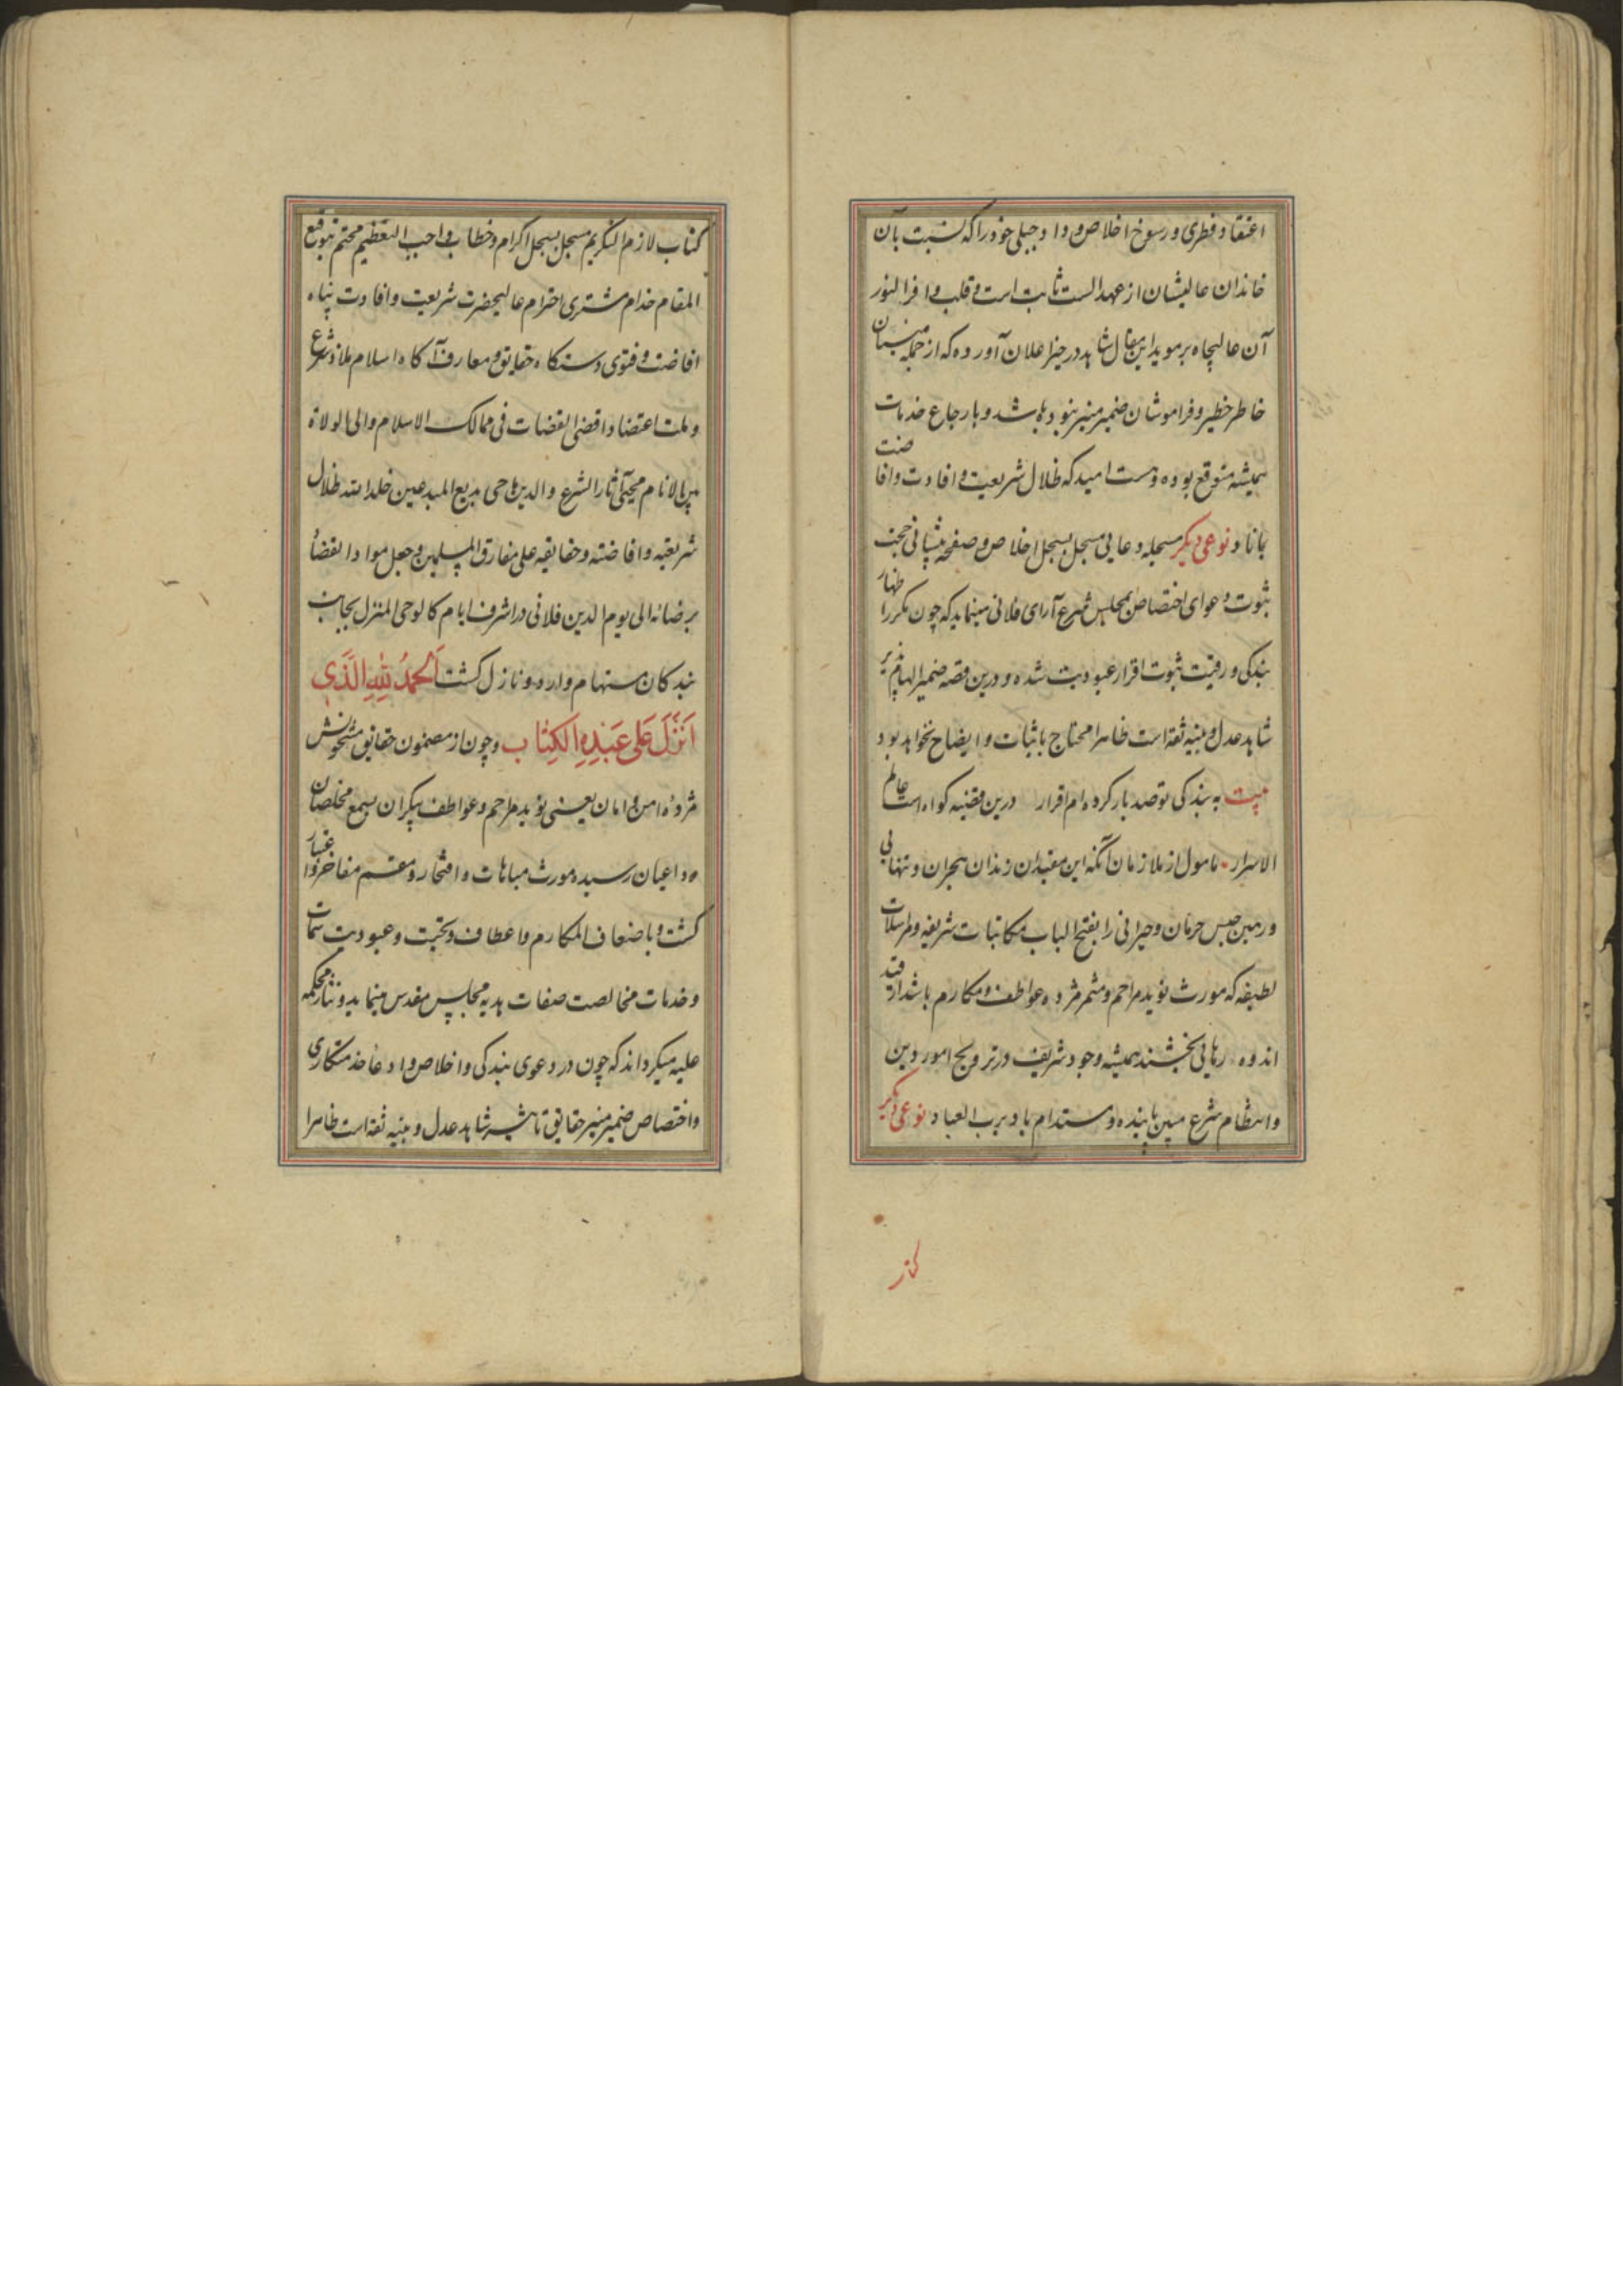 اعتقاد فطری و رسوخ اخلاص و وداد جبلی خود را که نسبت بآن
خاندان عالیشان از عهد الست ثابت است و قلب وافر النور
آن عالیجاه بر موید این مقال شاهد در حیز اعلان آورده که از جمله منسیان
خاطر خطیر و فراموشان ضمیر منیر نبوده باشد و بارجاع خدمات
همیشه متوقع بوده و هست امید که ظلال شریعت و افادت و افاضت
باناد نوعی دیگر مسجله دعایی مسجل بسجل اخلاص و صفحه پیشانی حجت
ثبوت دعوای اختصاص بمجلس شرع آرای فلانی مینماید که چون مکررا اظهار
بندگی و رقیت ثبوت اقرار عبودیت شده و درین قصه ضمیر الهام پذیر
شاهد عدل و بینه ثقه است ظاهرا محتاج باثبات و ایضاح نخواهد بود
بیت به بندگی تو صد بار کرده ام اقرار درین قضیه گواه است عالم
الاسرار مامول از ملازمان آنکه این مقیدان زندان هجران و تنهایی
و رهین حبس حرمان و حیرانی را بفتح الباب مکاتبات شریفه و مراسلات
لطیفه که مورث نوید مراحم و مثمر مژده عواطف و مکارم باشد از قید
اندوه رهایی بخشند همیشه وجود شریف در ترویج امور دین
و انتظام شرع مبین پاینده و مستدام باد برب العباد نوعی دیگر
کتاب
کتاب لازم التکریم مسجل بسجل اکرام و خطاب واجب التعظیم مختم بتوقیع
المقام خدام مشتری احترام عالیحضرت شریعت و افادت پناه
افاضت و فتوی دستگاه حقایق و معارف آگاه اسلام ملاذ شرع
و ملت اعتضاد اقضی القضات فی ممالک الاسلام والی الولاة
بین الانام محیی آثار الشرع و الدین ماحی بدیع المبدعین خلد الله ظلال
شریعته و افاضته و حقایقه علی مفارق المسلمین و جعل مواد القضا
برضائه الی یوم الدین فلانی در اشرف ایام کالوحی المنزل بجانب
بندگان مستهام وارد و نازل گشت اَلحَمدُ لِلّهِ الَّذی
اَنزَلَ عَلی عَبدِهِ الکِتابَ و چون از مضمون حقایق مشحونش
مژده امن و امان یعنی نوید مراحم و عواطف بیکران بسمع مخلصان
و داعیان رسیده مورث مباهات و افتخار و مفاخر
گشت و باضعاف المکارم و اعطاف و تحیت و عبودیت سمات
و خدمات مخالصت صفات هدیه مجلس مقدس مینماید و نثار محکمه
علیه میگرداند که چون در دعوی بندگی و اخلاص و ادعا خدمتکاری
و اختصاص ضمیر منیر حقایق تاثیر شاهد عدل و بینه ثقه است ظاهرا